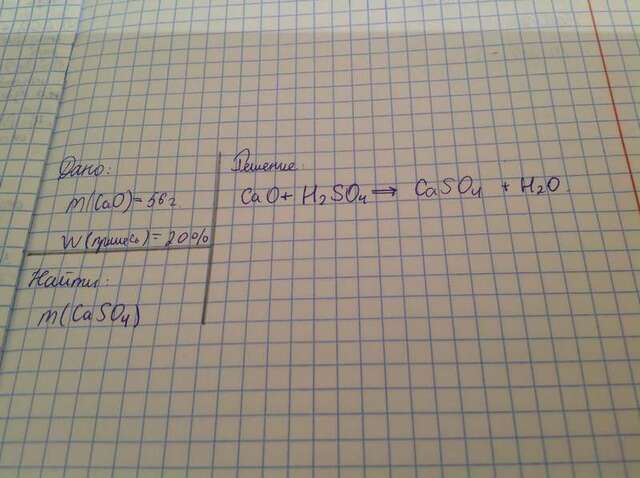 Дано:
m(CaO)=56г
W(примесь)=20%
Найти:
m(CaSO₄)
Решение:
CaO + H₂SO₄ ⟹ CaSO₄ + H₂O.